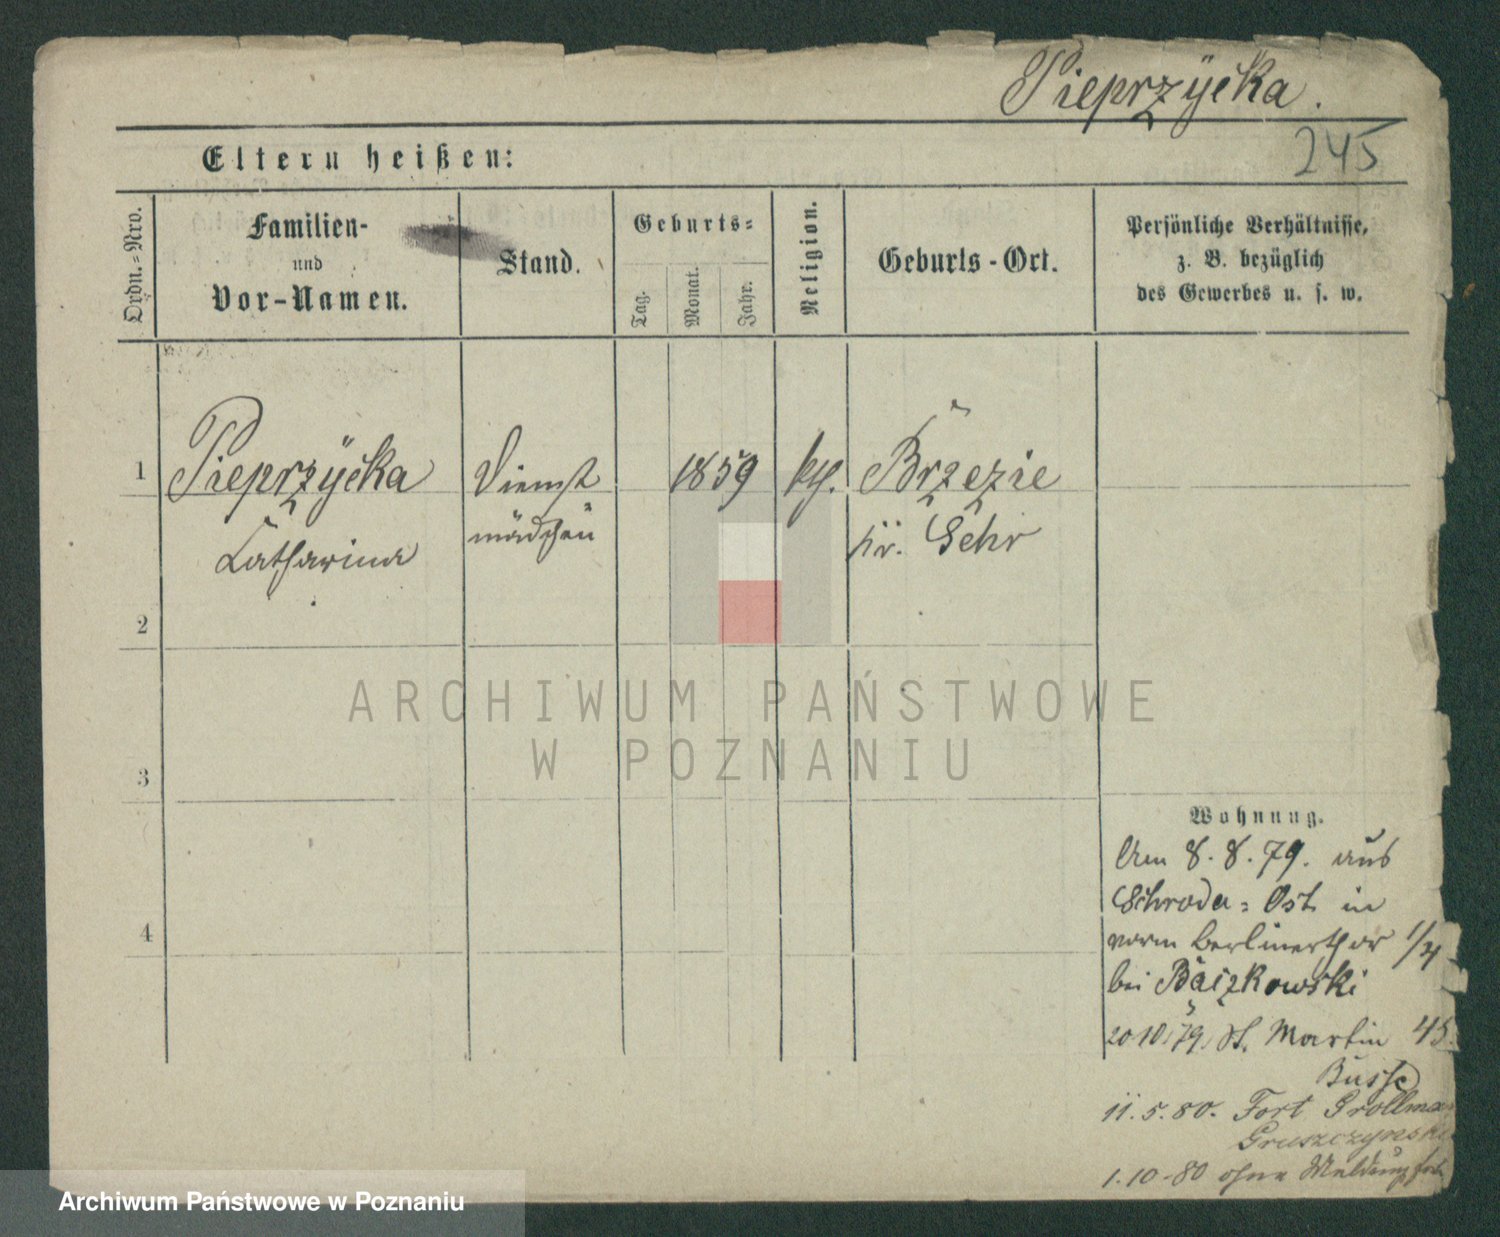 Pieprzycka.
245
Eltern heißen:
Ordn.-Nro.
Familien-
und
Vor-Namen.
Stand.
Geburts-
Tag.
Monat.
Jahr.
Religion.
Geburts-Ort.
Persönliche Verhältnisse,
z. B. bezüglich
des Gewerbes u. s. w.
1 Pieprzycka Dienst 1859 kth. Brzezie
Catharina mädchen kr. Schr
2
ARCHIWUM PAŃSTWOWE
W POZNANIU
3
4
Wohnung.
Am 8.8.79. aus
Schroda-Ost in
vorm Berlinerthor 1/4
bei Bączkowski
20 10/79, St. Martin 45.
Busse
11.5.80. Fort Grollman
Gruszczynski
1.10-80 ohne Meldung fort
Archiwum Państwowe w Poznaniu